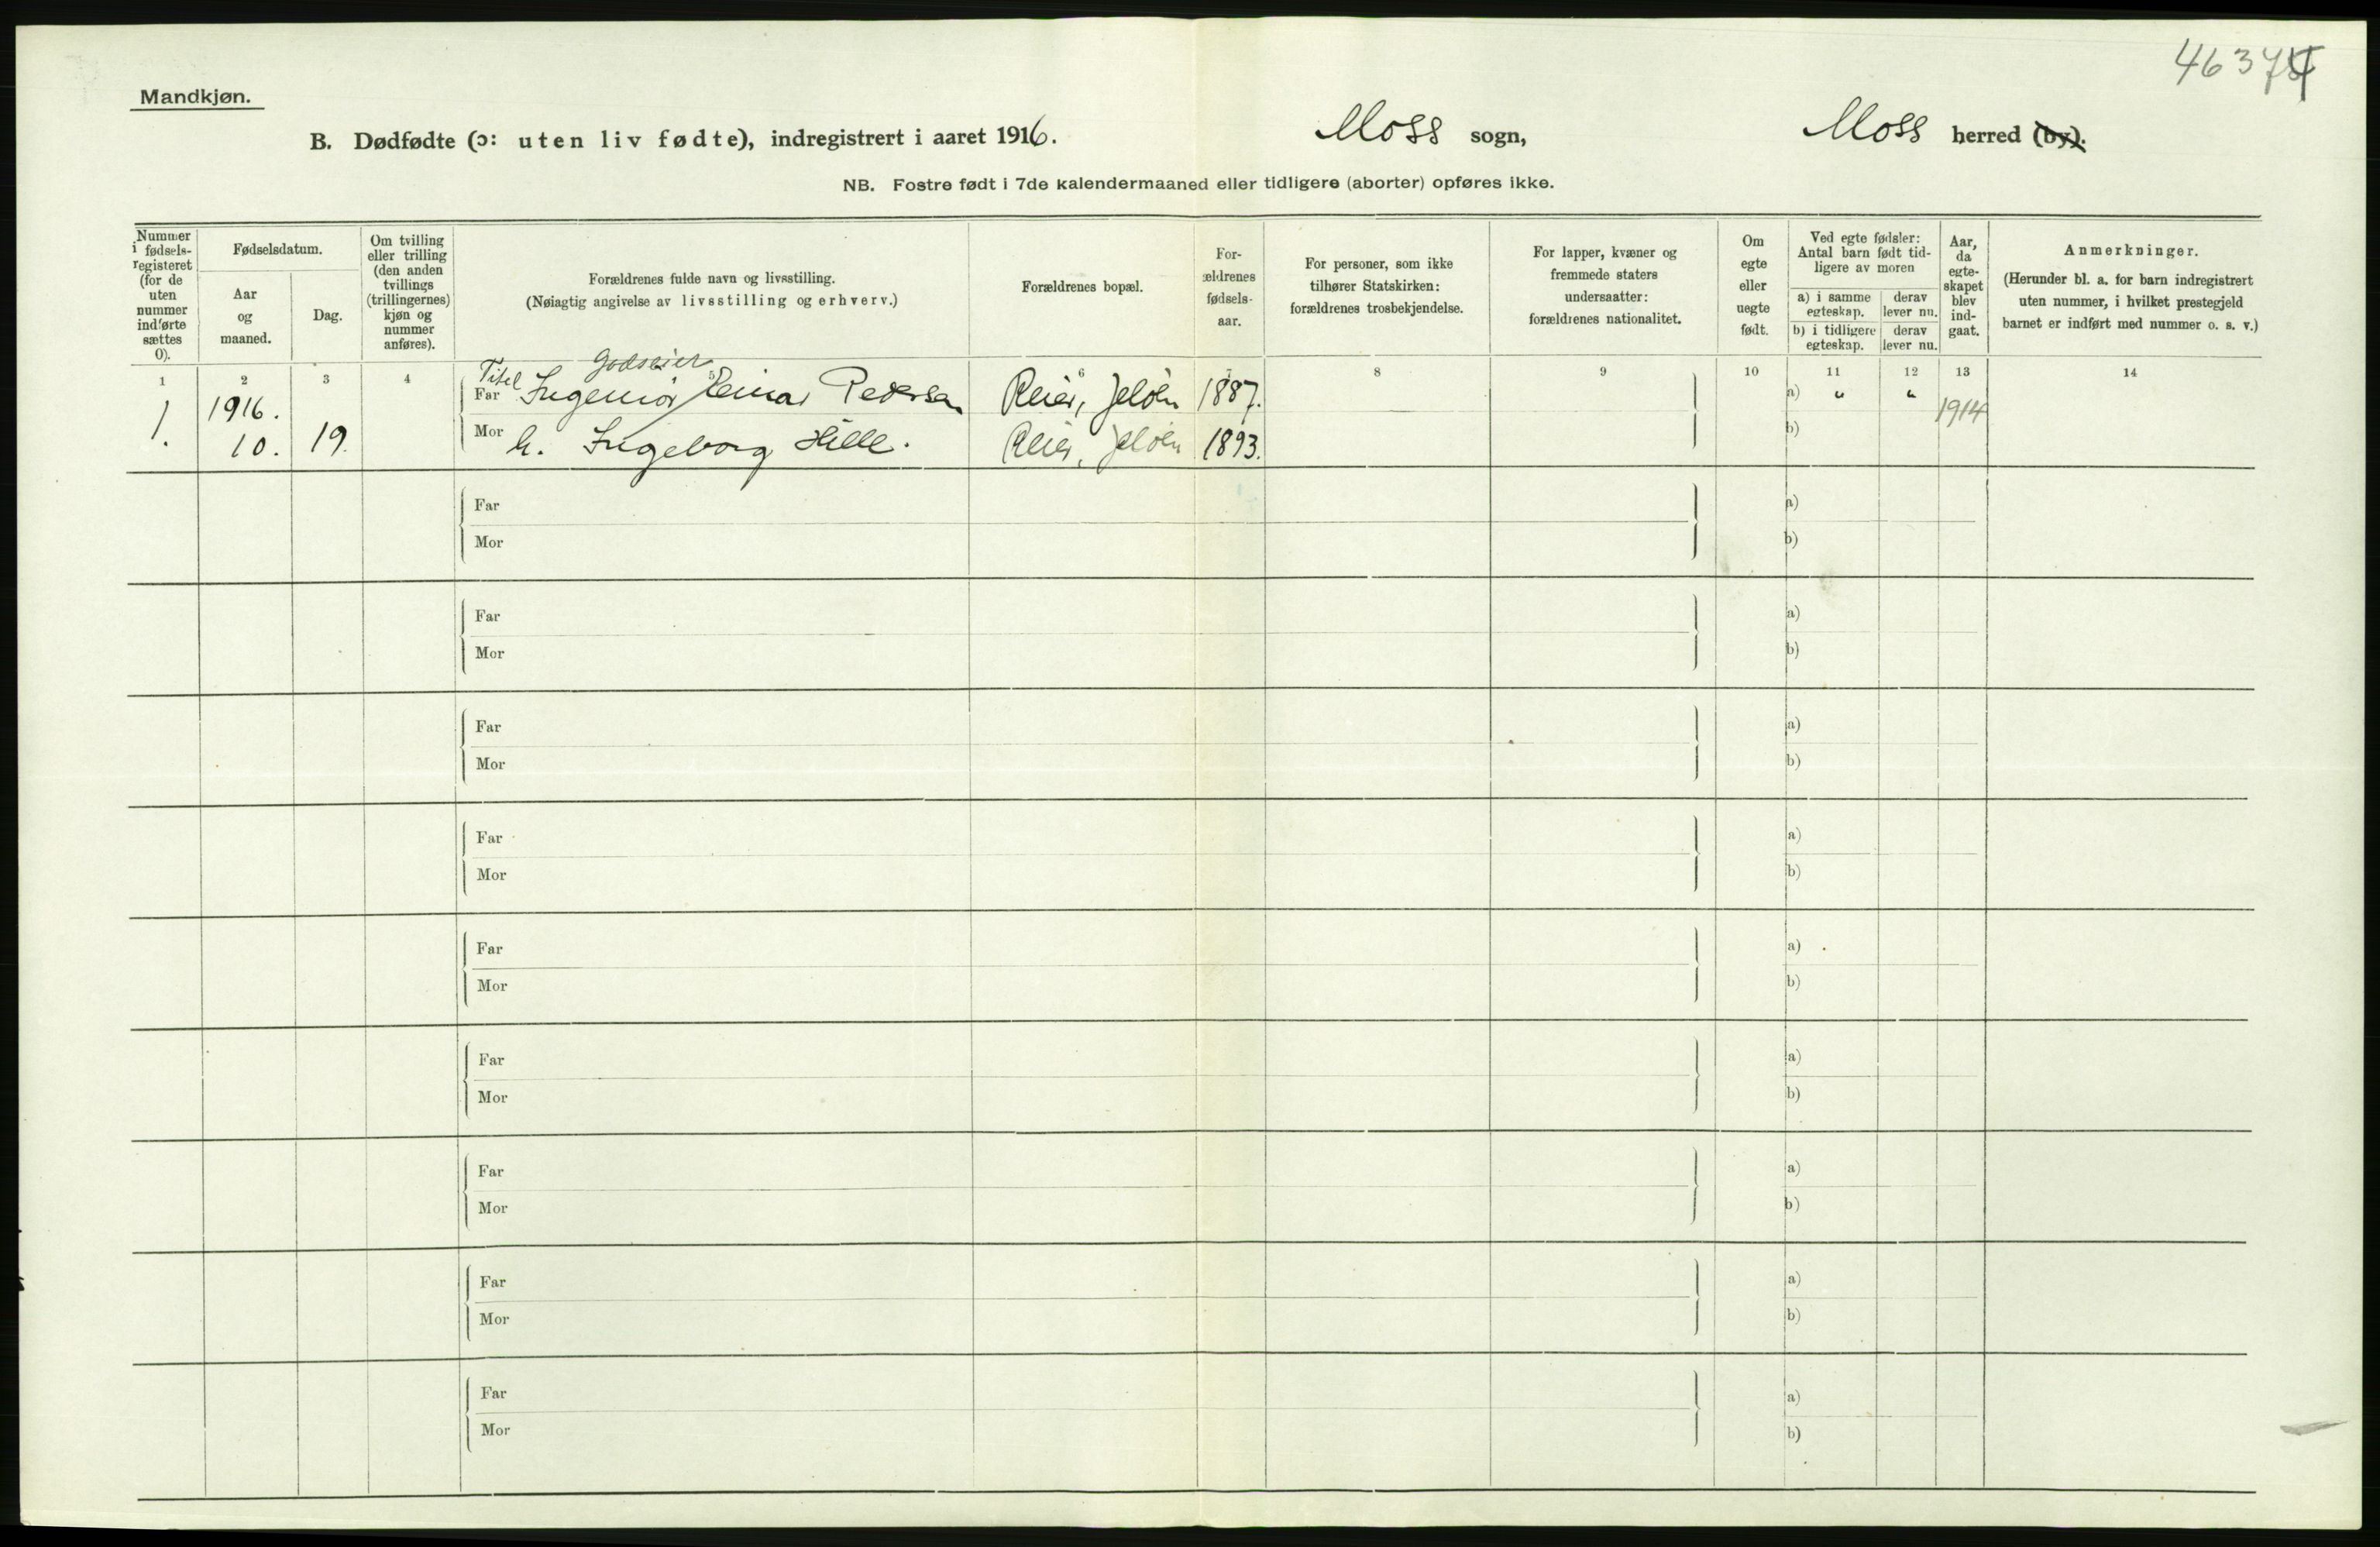 4637
Mandkjøn.
B. Dødfødte (ɔ: uten liv fødte), indregistrert i aaret 1916. Moss sogn, Moss herred (by).
NB. Fostre født i 7de kalendermaaned eller tidligere (aborter) opføres ikke.
Nummer
i fødsels-
registeret
(for de
uten
nummer
indførte
sættes
0).
Fødselsdatum.
Aar
og
maaned.
Dag.
Om tvilling
eller trilling
(den anden
tvillings
(trillingernes)
kjøn og
nummer
anføres).
Forældrenes fulde navn og livsstilling.
(Nøiagtig angivelse av livsstilling og erhverv.)
Forældrenes bopæl.
For-
ældrenes
fødsels-
aar.
For personer, som ikke
tilhører Statskirken:
forældrenes trosbekjendelse.
For lapper, kvæner og
fremmede staters
undersaatter:
forældrenes nationalitet.
Om
egte
eller
uegte
født.
Ved egte fødsler:
Antal barn født tid-
ligere av moren
a) i samme
egteskap.
derav
lever nu.
b) i tidligere
egteskap.
derav
lever nu.
Aar,
da
egte-
skapet
blev
ind-
gaat.
Anmerkninger.
(Herunder bl. a. for barn indregistrert
uten nummer, i hvilket prestegjeld
barnet er indført med nummer o. s. v.)
1 2 3 4 5 6 7 8 9 10 11 12 13 14
Titel Godseier
1. 1916. Far Ingeniør Einar Pedersen Reier, Jeløen 1887. a) " " 1914
10. 19. Mor h. Ingeborg Hille. Reier, Jeløen 1893. b)
Far a)
Mor b)
Far a)
Mor b)
Far a)
Mor b)
Far a)
Mor b)
Far a)
Mor b)
Far a)
Mor b)
Far a)
Mor b)
Far a)
Mor b)
Far a)
Mor b)